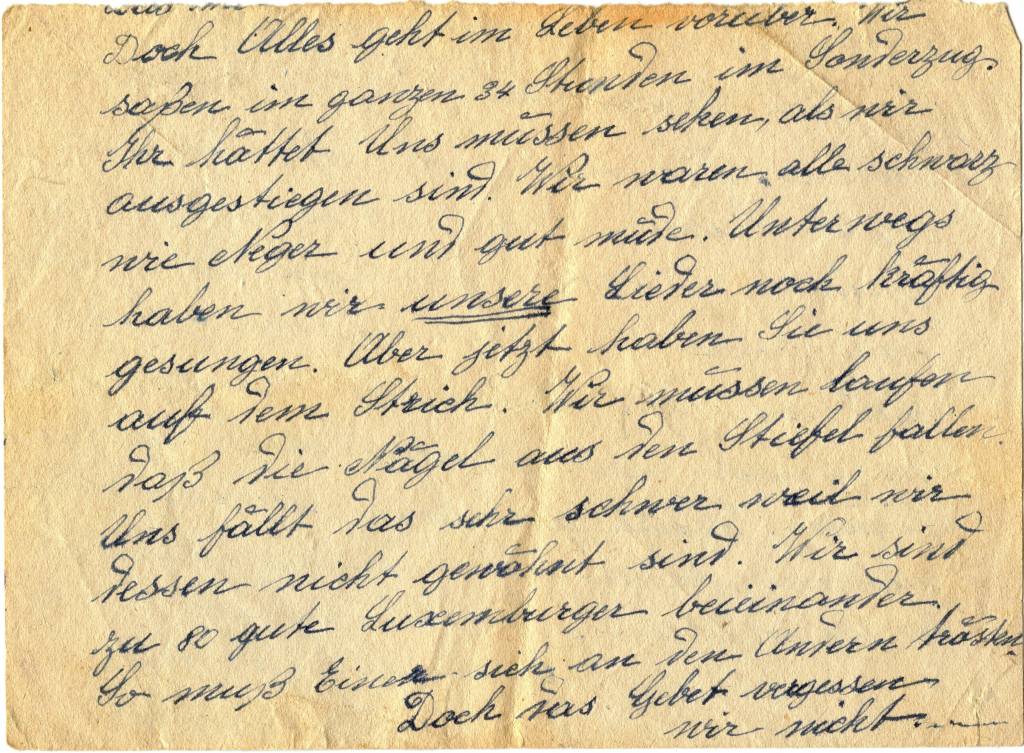 Doch Alles geht im Leben vorüber. Wir
saßen im ganzen 34 Stunden im Sonderzug.
Ihr hättet Uns müssen sehen, als wir
ausgestiegen sind. Wir waren alle schwarz
wie Neger und gut müde. Unterwegs
haben wir unsere Lieder noch kräftig
gesungen. Aber jetzt haben Sie uns
auf dem Strich. Wir müssen laufen
daß die Nägel aus den Stiefel fallen.
Uns fällt das sehr schwer weil wir
dessen nicht gewöhnt sind. Wir sind
zu 80 gute Luxemburger beieinander.
So muß Einer sich an den Andern trösten.
Doch das Gebet vergessen
wir nicht.